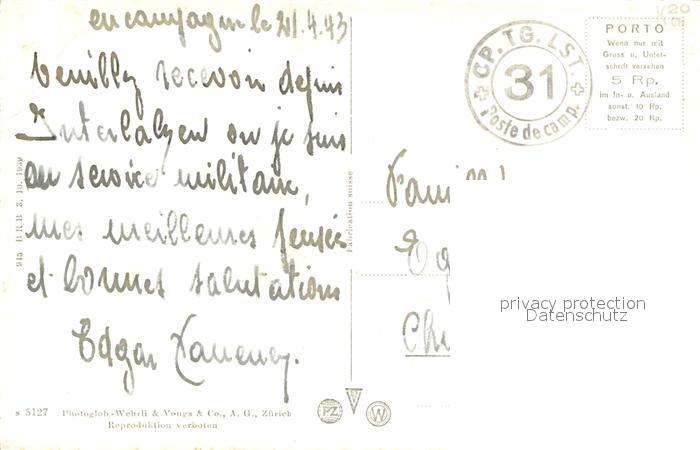 en campagne le 21.4.43
Veuillez recevoir depuis
Interlaken ou je suis
au service militaire,
mes meilleures pensés
et bonnes salutations
Edgar
s 5127 Photoglob-Wehrli & Vouga & Co., A. G., Zürich
Reproduktion verboten
945 B.R.B 3. 10. 1939
Fabrication suisse
PZ W
CP. TG. LST.
31
Poste de camp.
PORTO
Wenn nur mit
Gruss u. Unter-
schrift versehen
5 Rp.
im In- u. Ausland
sonst. 10 Rp.
bezw. 20 Rp.
Fam
Eg
Ch
privacy protection
Datenschutz